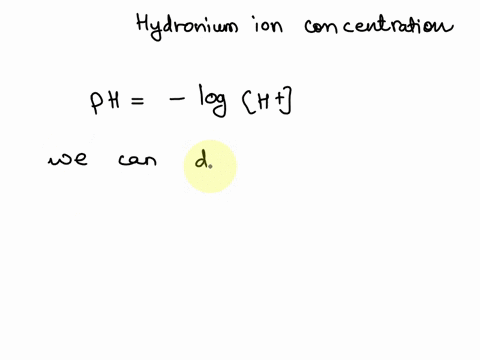 Hydronium ion concentration
pH = - log [H+]
we can d